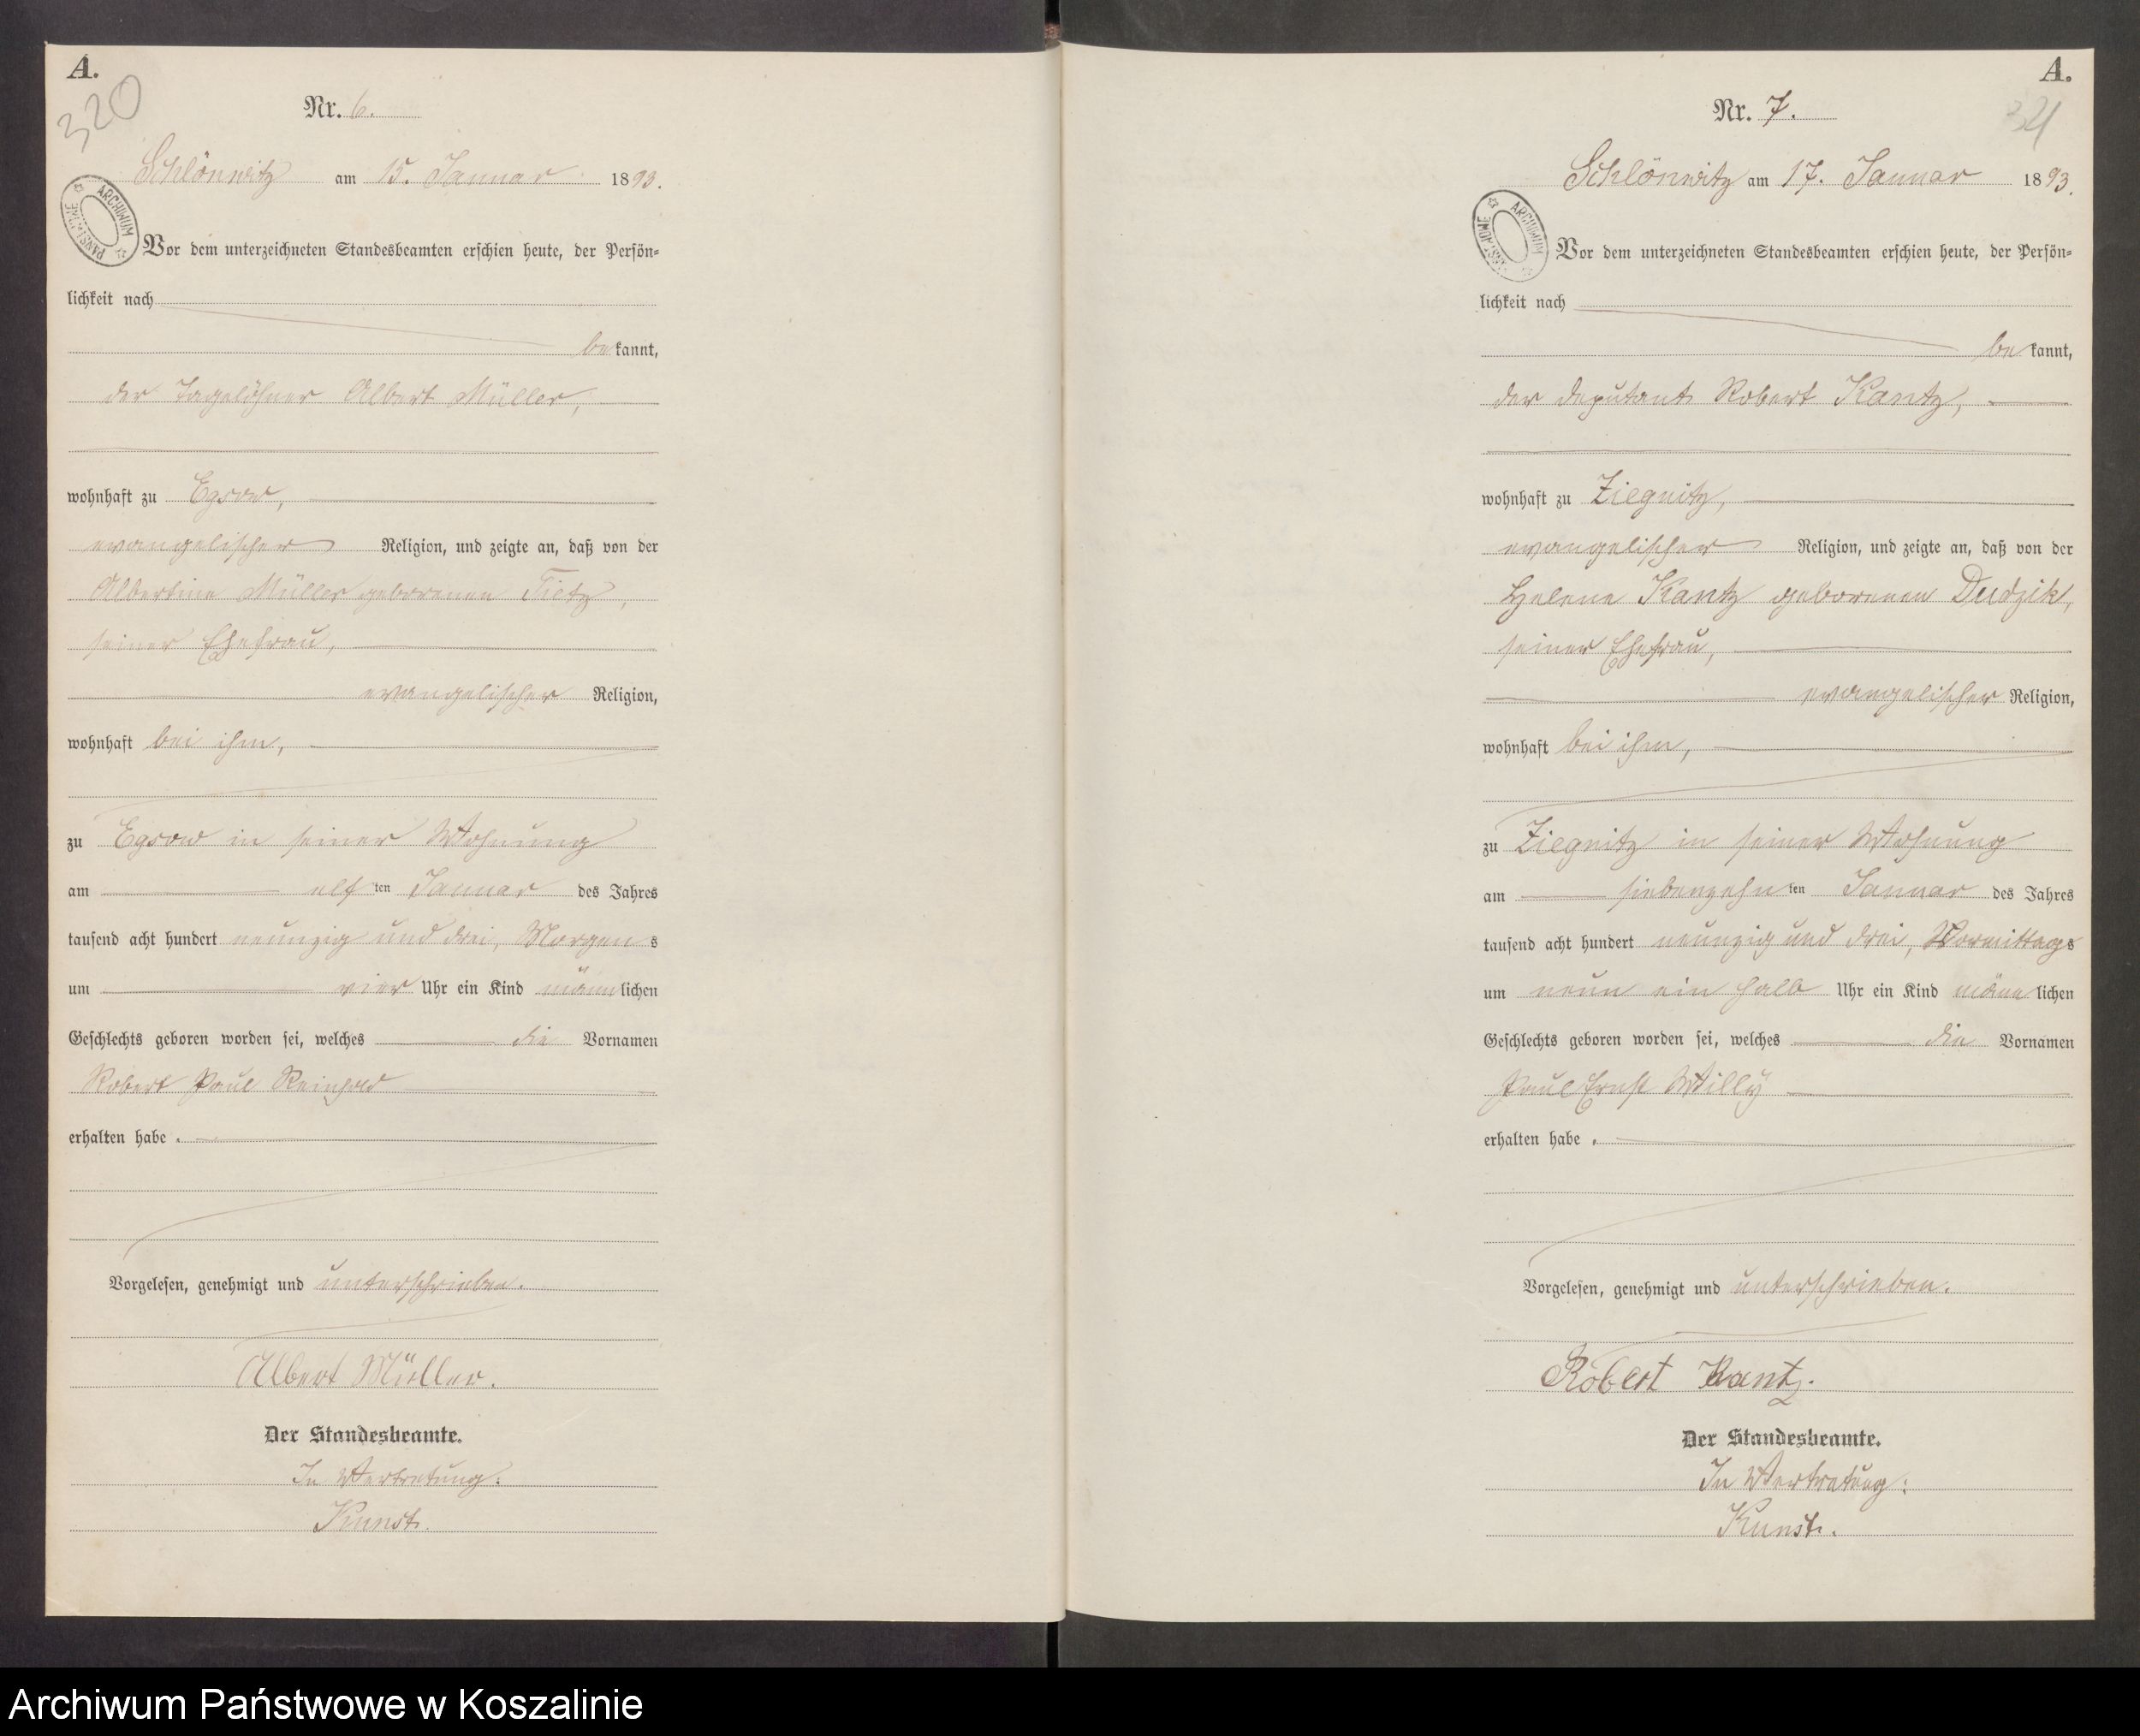 A.
320
Nr. 6.
Schlönwitz am 15. Januar 1893.
ARCHIWUM PAŃSTWOWE
Vor dem unterzeichneten Standesbeamten erschien heute, der Persön-
lichkeit nach
bekannt,
der Tagelöhner Albert Müller,
wohnhaft zu Egsow,
evangelischer Religion, und zeigte an, daß von der
Albertine Müller geborenen Tietz,
seiner Ehefrau,
evangelischer Religion,
wohnhaft bei ihm,
zu Egsow in seiner Wohnung
am elften Januar des Jahres
tausend acht hundert neunzig und drei, Morgens
um vier Uhr ein Kind männlichen
Geschlechts geboren worden sei, welches die Vornamen
Robert Paul Reinhold
erhalten habe.
Vorgelesen, genehmigt und unterschrieben.
Albert Müller.
Der Standesbeamte.
In Vertretung:
Kunst.
A.
Nr. 7.
Schlönwitz am 17. Januar 1893.
ARCHIWUM PAŃSTWOWE
Vor dem unterzeichneten Standesbeamten erschien heute, der Persön-
lichkeit nach
bekannt,
der Deputant Robert Kantz,
wohnhaft zu Ziegnitz,
evangelischer Religion, und zeigte an, daß von der
Helene Kantz geborenen Dudzik,
seiner Ehefrau,
evangelischer Religion,
wohnhaft bei ihm,
zu Ziegnitz in seiner Wohnung
am siebenzehnten Januar des Jahres
tausend acht hundert neunzig und drei, Vormittags
um neun ein halb Uhr ein Kind männlichen
Geschlechts geboren worden sei, welches die Vornamen
Paul Ernst Willy
erhalten habe.
Vorgelesen, genehmigt und unterschrieben.
Robert Kantz.
Der Standesbeamte.
In Vertretung:
Kunst.
Archiwum Państwowe w Koszalinie